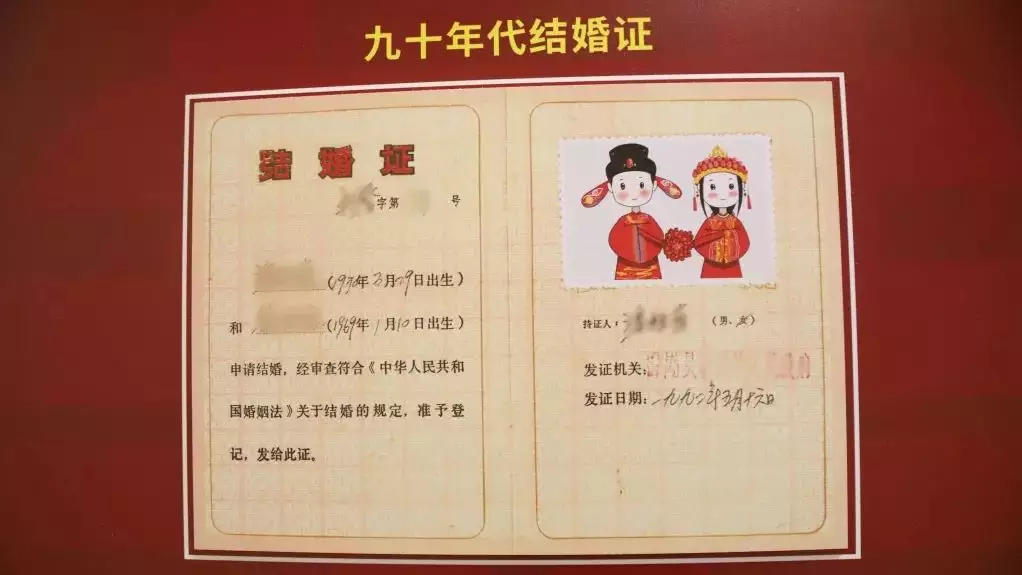 九十年代结婚证
结婚证
字第 号
(1970年3月29日出生)
和 (1969年1月10日出生)
申请结婚，经审查符合《中华人民共和
国婚姻法》关于结婚的规定，准予登
记，发给此证。
持证人： (男、女)
发证机关：
发证日期：一九九二年五月十六日